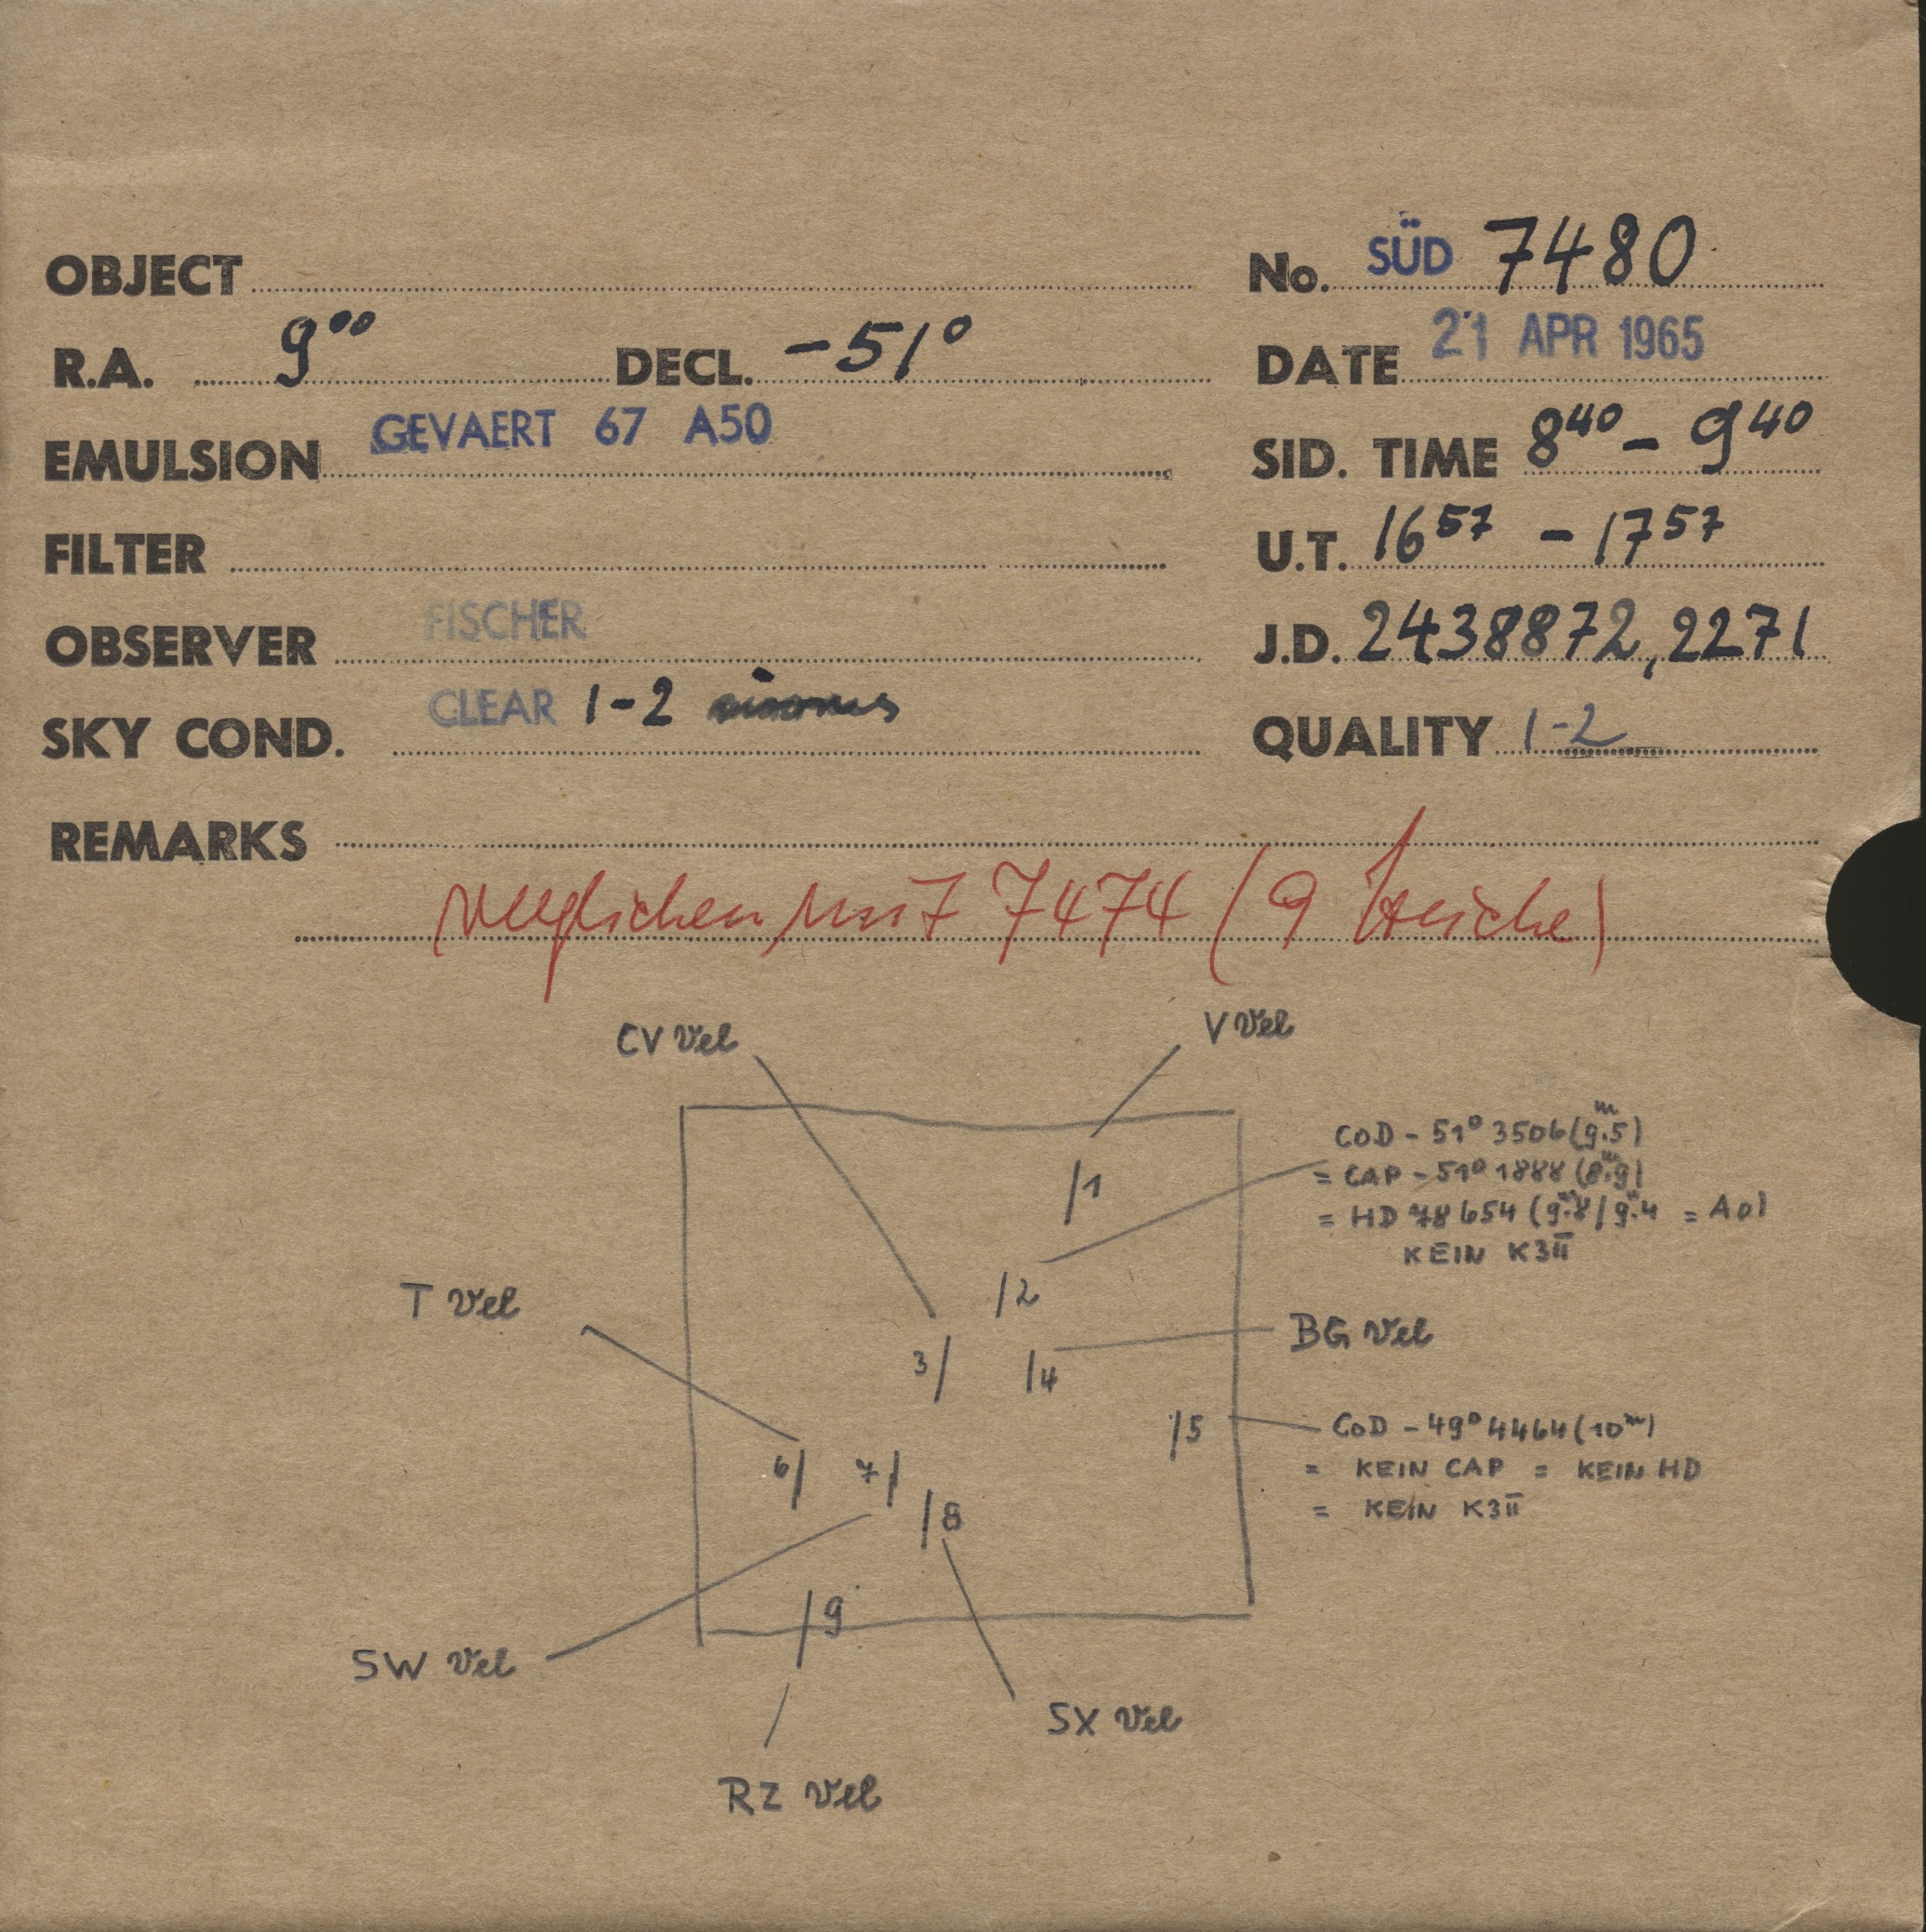 OBJECT
No. SÜD 7480
R.A. 9⁰⁰ DECL. -51°
DATE 21 APR 1965
EMULSION GEVAERT 67 A50
SID. TIME 8⁴⁰ - 9⁴⁰
FILTER
U.T. 16⁵⁷ - 17⁵⁷
OBSERVER FISCHER
J.D. 2438872,2271
SKY COND. CLEAR 1-2
QUALITY 1-2
REMARKS
verglichen mit 7474 (9 Striche)
CV Vel
V Vel
CoD - 51° 3506 (9ᵐ.5)
= CAP - 51° 1888 (8ᵐ.9)
= HD 78654 (9ᵐ.8/9ᵐ.4 = A0)
KEIN K3II
1
T Vel
2
BG Vel
3
4
CoD - 49° 4464 (10ᵐ)
= KEIN CAP = KEIN HD
= KEIN K3II
5
6
7
8
9
SW Vel
SX Vel
RZ Vel